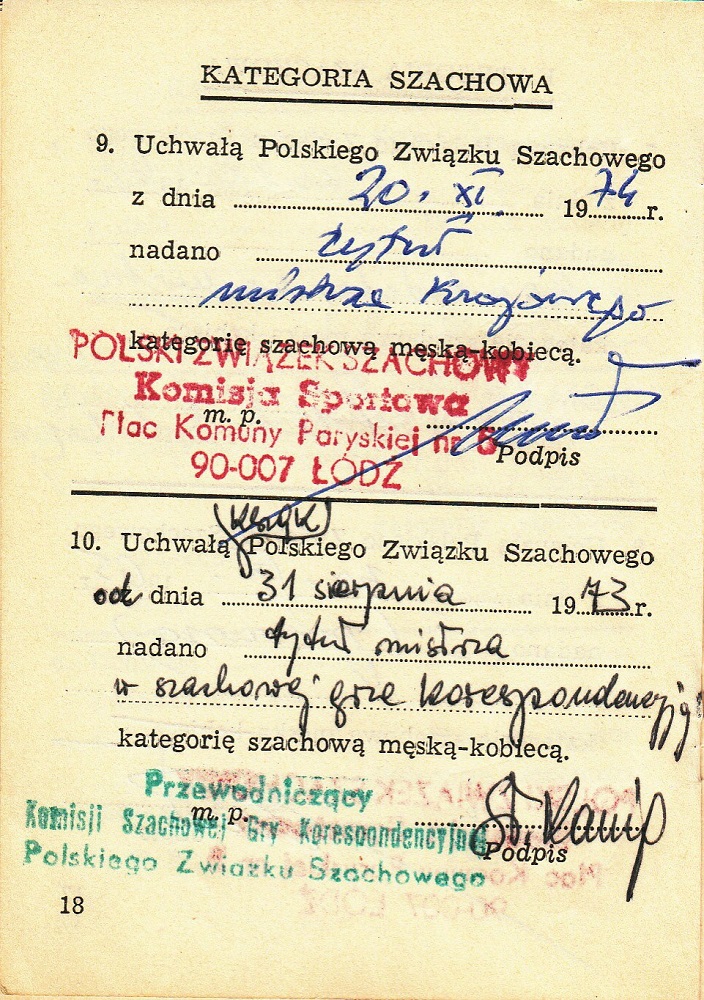 KATEGORIA SZACHOWA
9. Uchwałą Polskiego Związku Szachowego
z dnia 20. XI. 1974 r.
nadano tytuł
mistrza Krajowego
kategorię szachową męską-kobiecą.
POLSKI ZWIĄZEK SZACHOWY
Komisja Sportowa
m. p.
Plac Komuny Paryskiej nr 5
Podpis
90-007 ŁÓDŹ
10. Uchwałą Polskiego Związku Szachowego
od dnia 31 sierpnia 1973 r.
nadano tytuł mistrza
w szachowej grze korespondencyjnej
kategorię szachową męską-kobiecą.
Przewodniczący
m. p.
Komisji Szachowej Gry Korespondencyjnej
Podpis
Polskiego Związku Szachowego
18